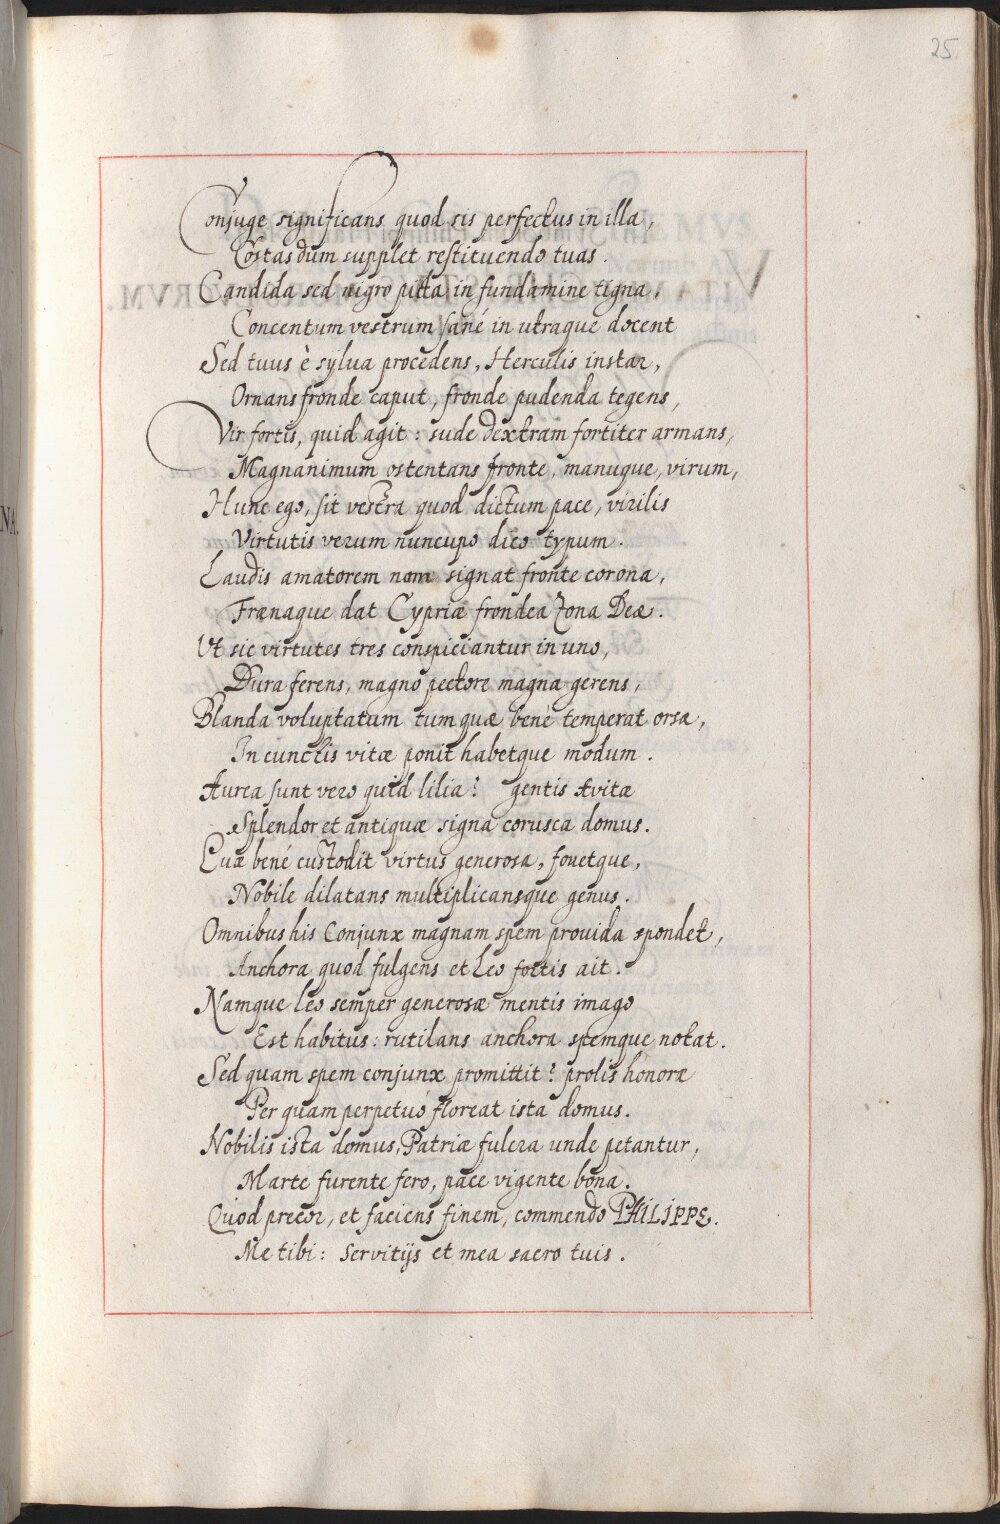 25
Conjuge significans quod sis perfectus in illa,
Costas dum supplet restituendo tuas.
Candida sed nigro picta in fundamine tigna,
Concentum vestrum sané in utraque docent
Sed tuus è sylua procedens, Herculis instar,
Ornans fronde caput, fronde pudenda tegens,
Vir fortis, quid agit: sude dextram fortiter armans,
Magnanimum ostentans fronte, manuque, virum,
Hunc ego, sit vestra quod dictum pace, virilis
Virtutis verum nuncupo dico typum.
Laudis amatorem nam signat fronte corona,
Frænaque dat Cypriæ frondea Zona Deæ.
Ut sic virtutes tres conspiciantur in uno,
Dura ferens, magno pectore magna gerens,
Blanda voluptatum tum quæ bené temperat orsa,
In cunctis vitæ ponit habetque modum.
Aurea sunt vero quid lilia? gentis Avitæ
Splendor et antiquæ signa corusca domus.
Quæ bené custodit virtus generosa, fouetque,
Nobile dilatans multiplicansque genus.
Omnibus his Conjunx magnam spem prouida spondet,
Anchora quod fulgens et Leo fortis ait.
Namque leo semper generosæ mentis imago
Est habitus: rutilans anchora spemque notat.
Sed quam spem conjunx promittit? prolis honoræ
Per quam perpetuó floreat ista domus.
Nobilis ista domus, Patriæ fulcra unde petantur,
Marte furente fero, pace vigente bona.
Quod precor, et faciens finem, commendo PHILIPPE.
Me tibi: Servitijs et mea sacro tuis.